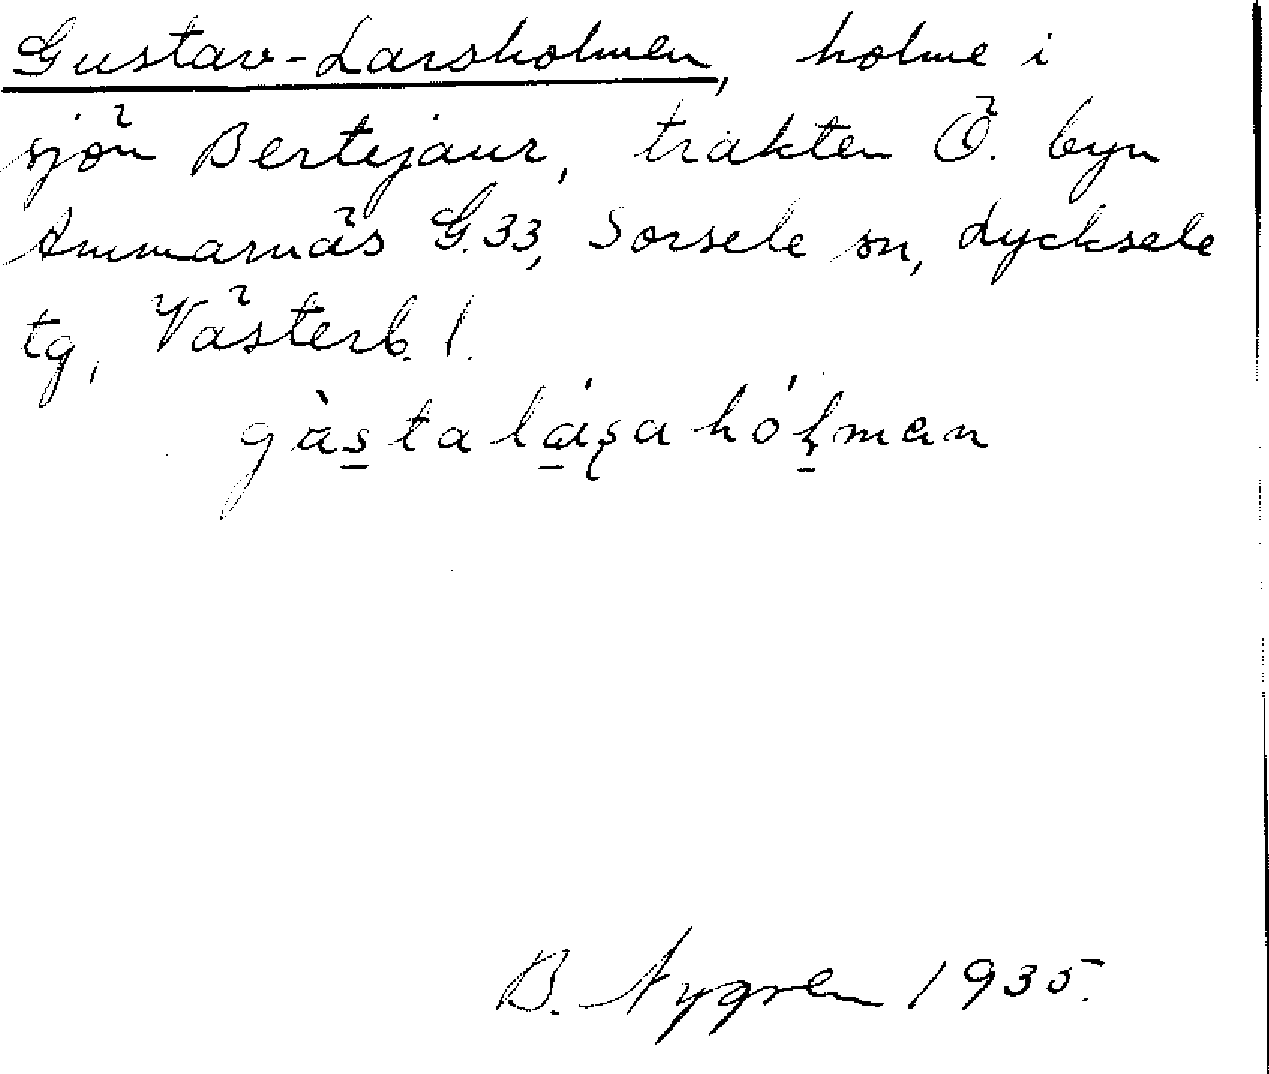 Gustav-Larsholmen, holme i
sjön Bertejaur, trakten Ö. byn
Ammarnäs G.33, Sorsele sn, Lycksele
tg, Västerb. l.
gàs̲talá̲ʂahóḻman
B. Nygren 1935.